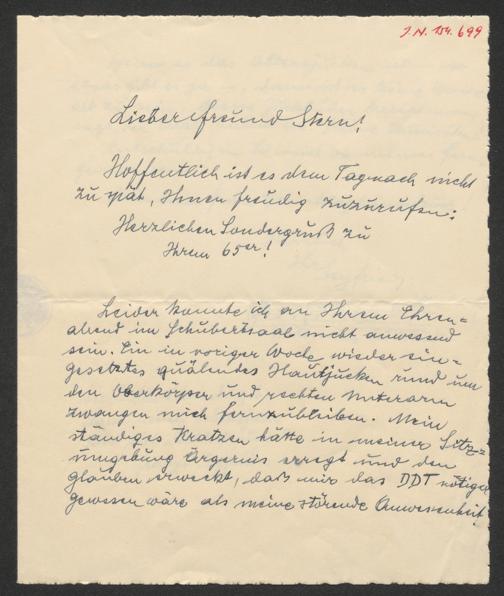 J.N. 154.699
Lieber Freund Stern!
Hoffentlich ist es dem Tag nach nicht
zu spät, Ihnen freudig zuzurufen:
Herzlichen Sondergruß zu
Ihrem 65er!
Leider konnte ich an Ihrem Ehren=
abend im Schubertsaal nicht anwesend
sein. Ein in voriger Woche wieder ein=
gesetztes quälendes Hautjucken rund um
den Oberkörper und rechten Unterarm
zwangen mich fernzubleiben. Mein
ständiges Kratzen hätte in meiner Sitz=
umgebung Ärgernis erregt und den
Glauben erweckt, daß mir das DDT nötiger
gewesen wäre als meine störende Anwesenheit!